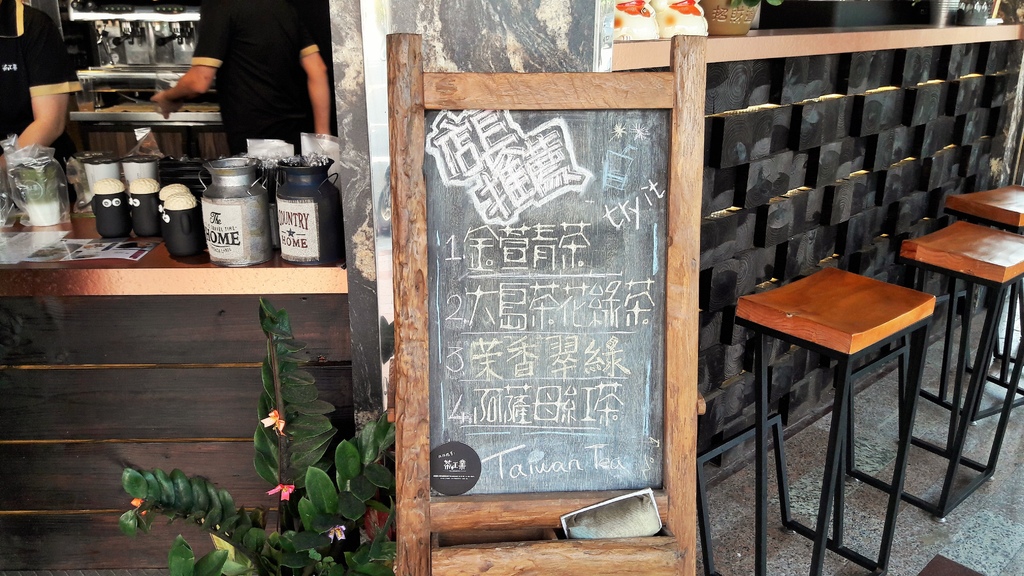 店長推薦
try it
1. 金萱青茶
2. 大島茶花綠茶
3. 茉香翠綠
4. 阿薩姆紅茶
Taiwan Tea
The
HOME
COUNTRY
HOME